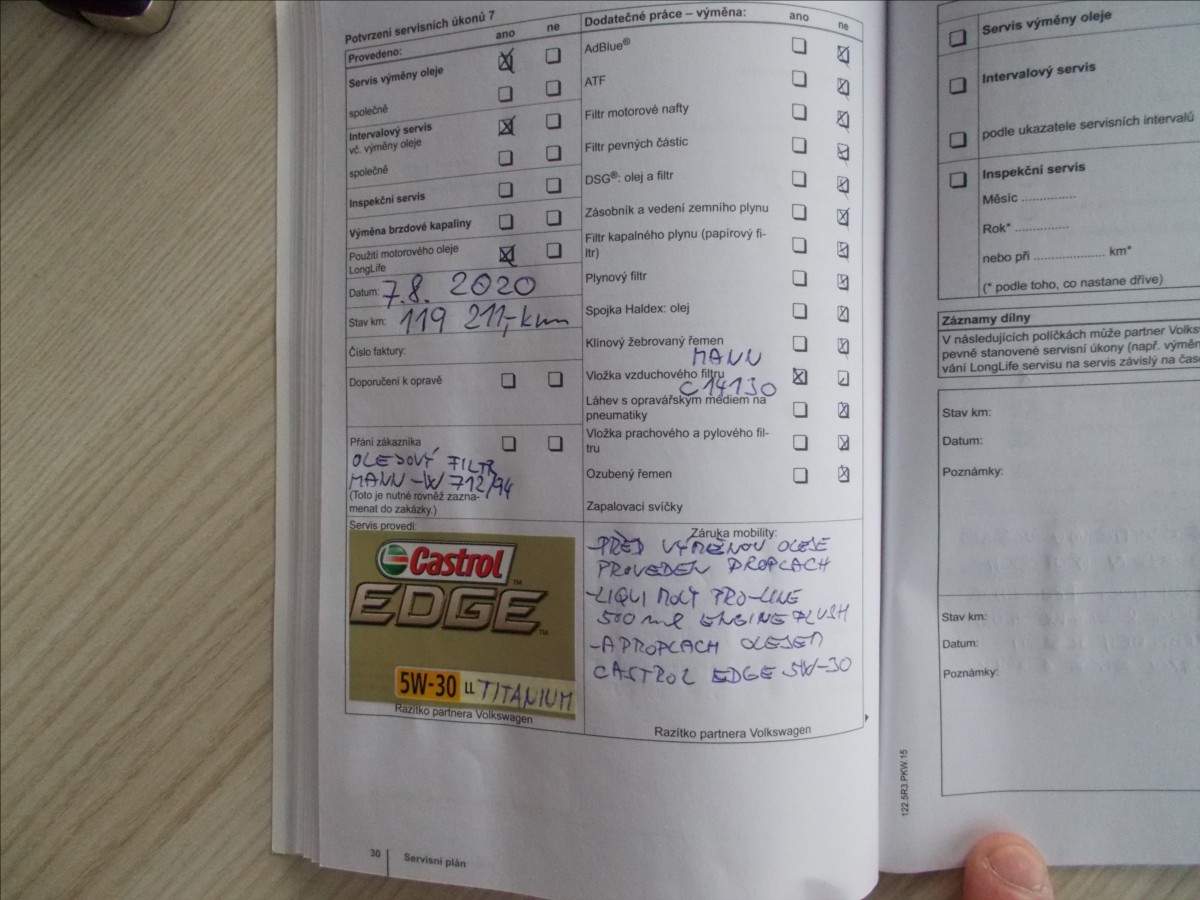 Potvrzení servisních úkonů 7
Provedeno:
ano
ne
Servis výměny oleje
společně
Intervalový servis
vč. výměny oleje
společně
Inspekční servis
Výměna brzdové kapaliny
Použití motorového oleje
LongLife
Datum: 7.8. 2020
Stav km: 119 211,- km
Číslo faktury:
Doporučení k opravě
Přání zákazníka
OLEJOVÝ FILTR
MANN - W 712/94
(Toto je nutné rovněž zazna-
menat do zakázky.)
Servis provedl:
Castrol
EDGE
5W-30 LL TITANIUM
Razítko partnera Volkswagen
Dodatečné práce – výměna:
ano
ne
AdBlue®
ATF
Filtr motorové nafty
Filtr pevných částic
DSG®: olej a filtr
Zásobník a vedení zemního plynu
Filtr kapalného plynu (papírový fi-
ltr)
Plynový filtr
Spojka Haldex: olej
Klínový žebrovaný řemen
MANN
Vložka vzduchového filtru
C 14130
Láhev s opravářským médiem na
pneumatiky
Vložka prachového a pylového fil-
tru
Ozubený řemen
Zapalovací svíčky
Záruka mobility:
-PŘED VÝMĚNOU OLEJE
PROVEDEN PROPLACH
-LIQUI MOLY PRO-LINE
500 ml ENGINE FLUSH
-A PROPLACH OLEJEM
CASTROL EDGE 5W-30
Razítko partnera Volkswagen
30
Servisní plán
Servis výměny oleje
Intervalový servis
podle ukazatele servisních intervalů
Inspekční servis
Měsíc ...............
Rok* ...............
nebo při .................... km*
(* podle toho, co nastane dříve)
Záznamy dílny
V následujících políčkách může partner Volks
pevně stanovené servisní úkony (např. výměn
vání LongLife servisu na servis závislý na čas
Stav km:
Datum:
Poznámky:
Stav km:
Datum:
Poznámky:
122.5R3.PKW.15